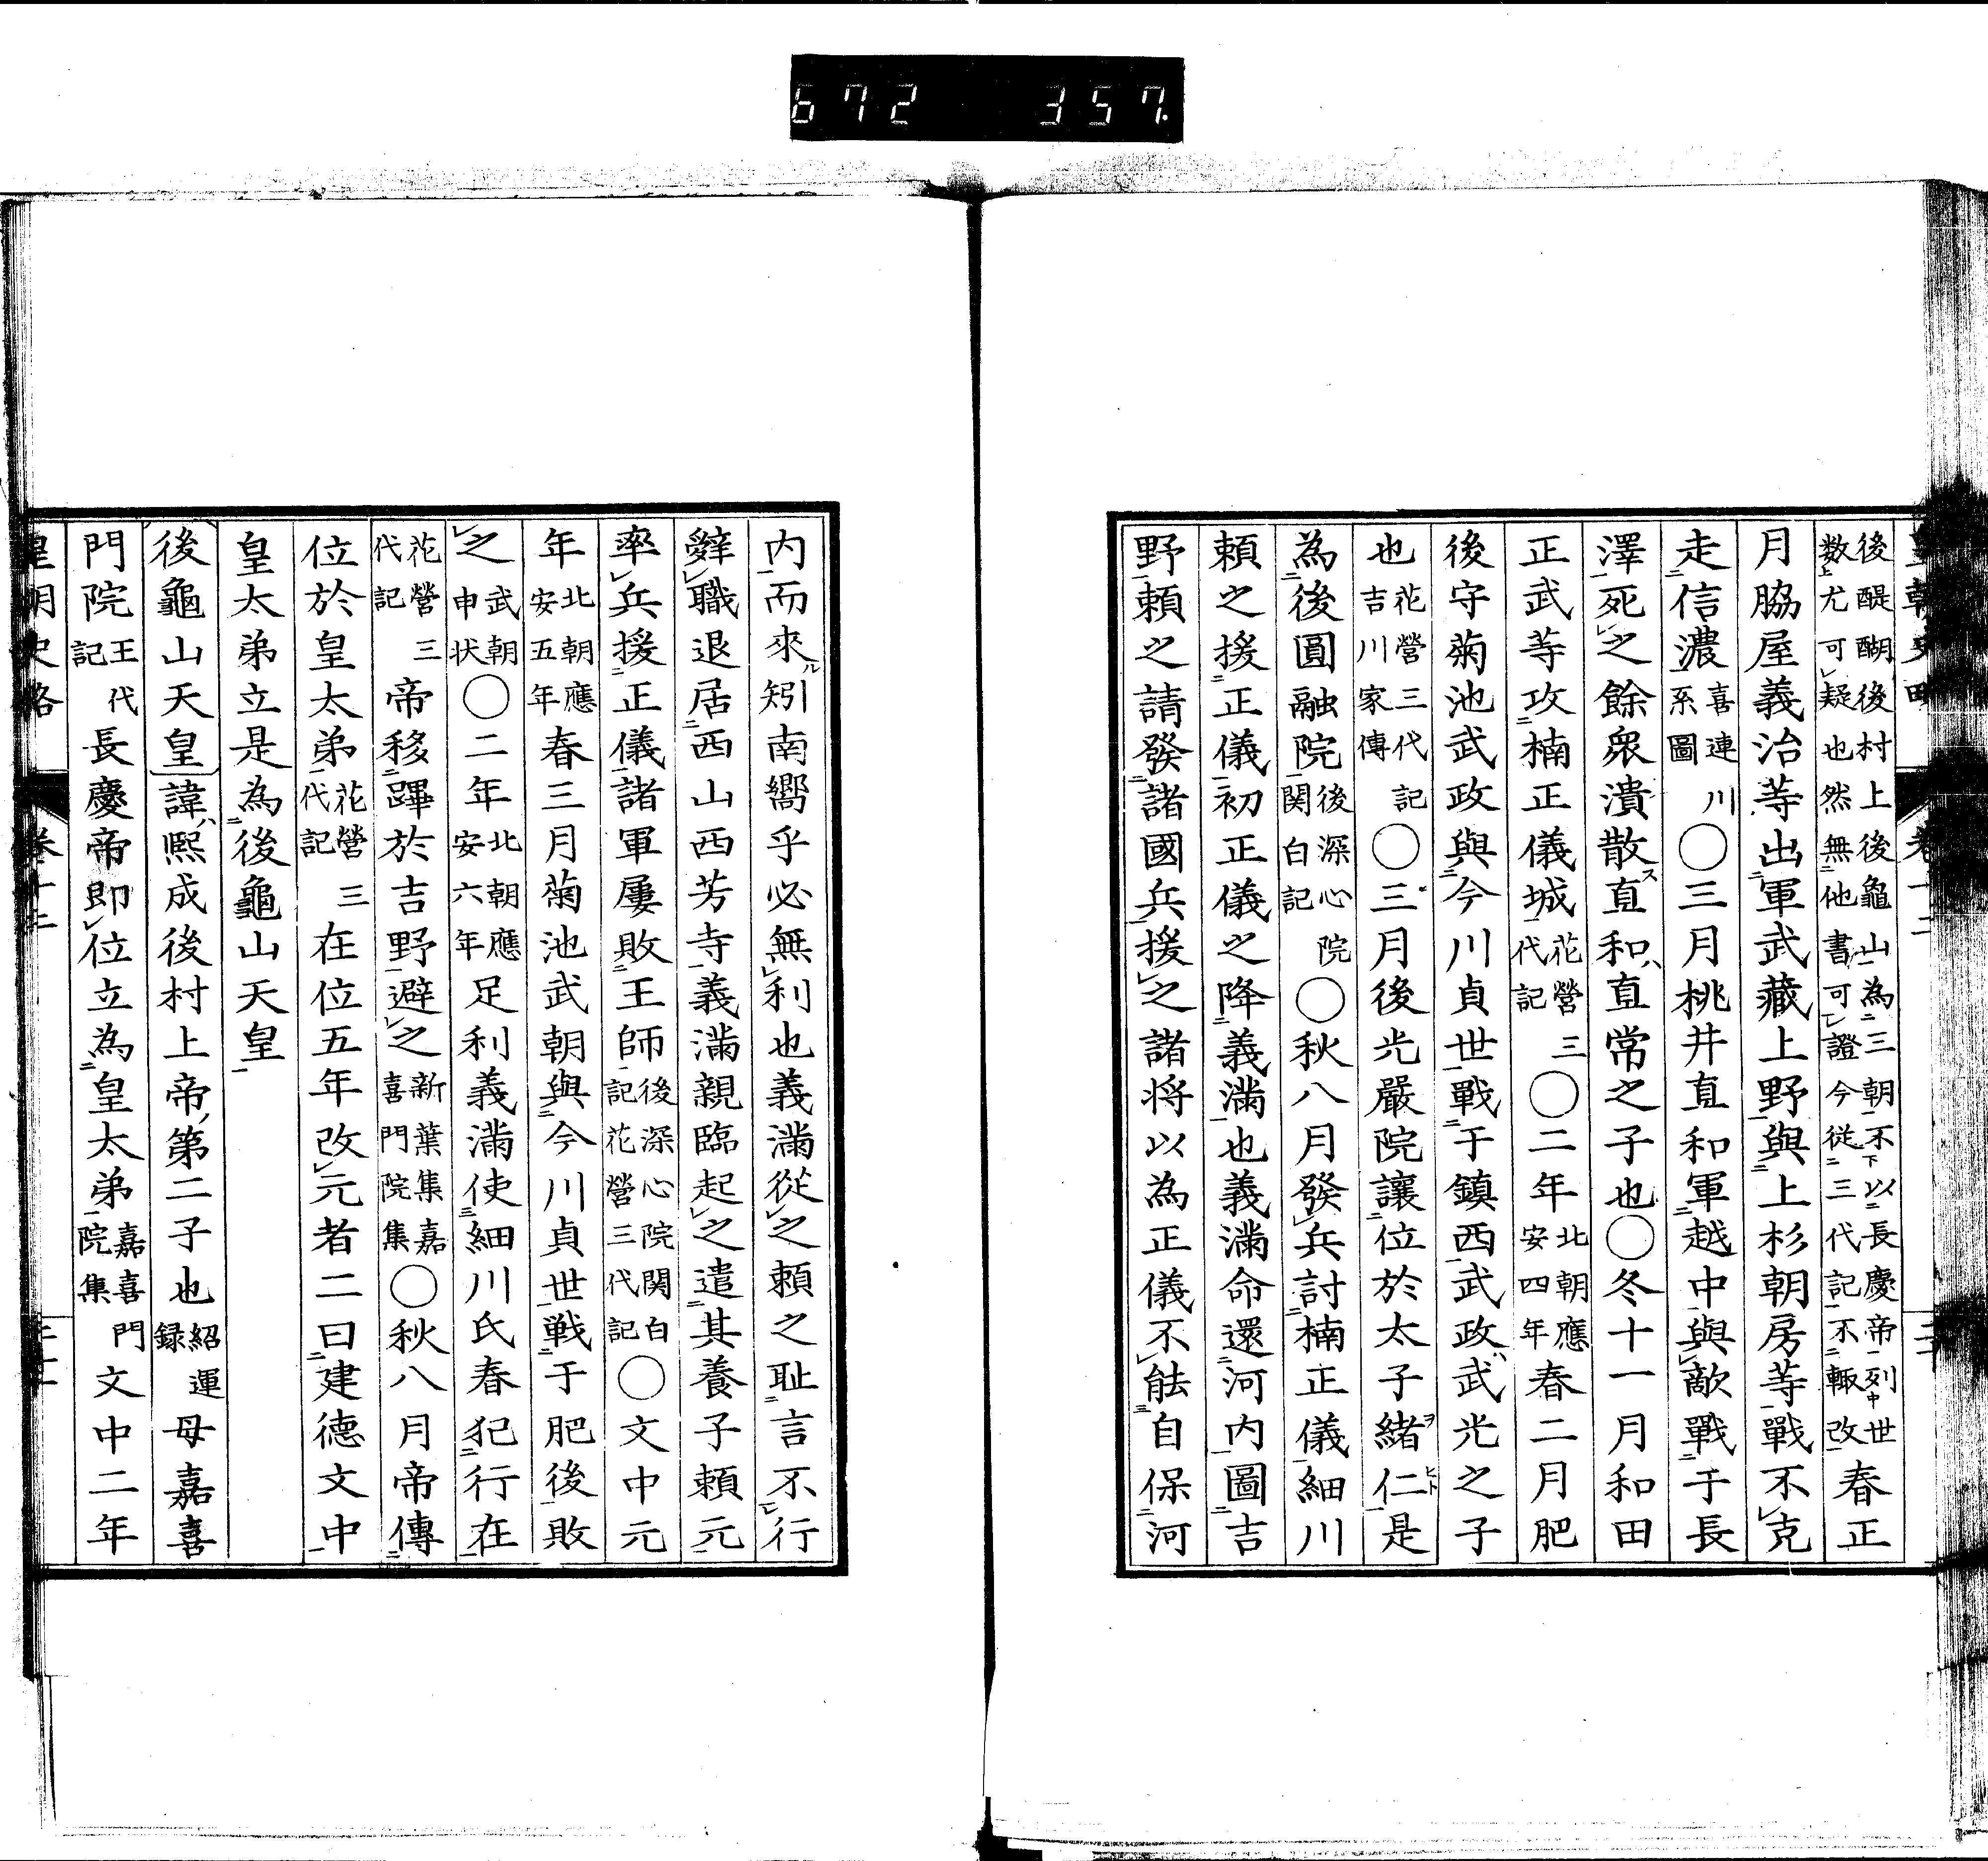 672 357.
後醍醐後村上後龜山為三朝不以長慶帝列世
数尤可疑也然無他書可證今從三代記不輙改
春正
月脇屋義治等出軍武藏上野與上杉朝房等戰不克
走信濃喜連川系圖○三月桃井直和軍越中與敵戰于長
澤死之餘衆潰散直和直常之子也○冬十一月和田
正武等攻楠正儀城花營三代記○二年北朝應安四年春二月肥
後守菊池武政與今川貞世戰于鎮西武政武光之子
也花營三代記吉川家傳○三月後光嚴院讓位於太子緒仁是
為後圓融院後深心院関白記○秋八月發兵討楠正儀細川
頼之援正儀初正儀之降義滿也義滿命還河内圖吉
野頼之請發諸國兵援之諸将以為正儀不能自保河
内而來矧南嚮乎必無利也義滿從之頼之耻言不行
辭職退居西山西芳寺義滿親臨起之遣其養子頼元
率兵援正儀諸軍屢敗王師後深心院関白記花營三代記○文中元
年北朝應安五年春三月菊池武朝與今川貞世戦于肥後敗
之武朝申状○二年北朝應安六年足利義滿使細川氏春犯行在
花營三代記帝移蹕於吉野避之新葉集嘉喜門院集○秋八月帝傳
位於皇太弟花營三代記在位五年改元者二曰建德文中
皇太弟立是為後龜山天皇
後龜山天皇諱熙成後村上帝第二子也紹運録母嘉喜
門院王代記長慶帝即位立為皇太弟嘉喜門院集文中二年
皇朝史略 卷十二